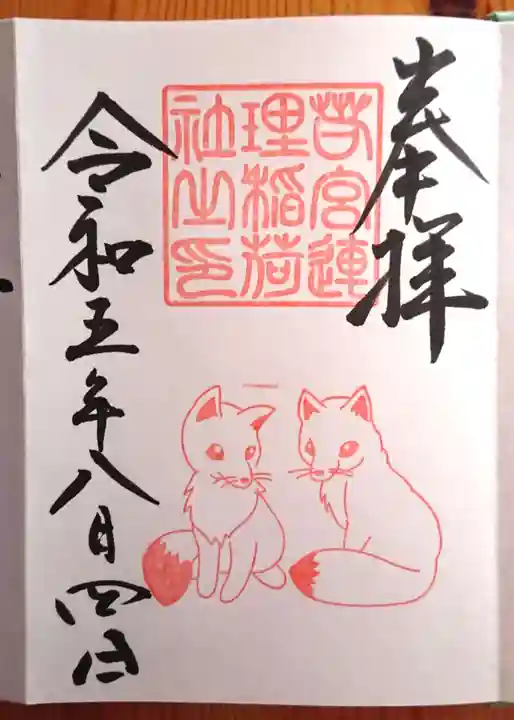 奉拝
若宮連
理稲荷
社之印
令和五年八月四日